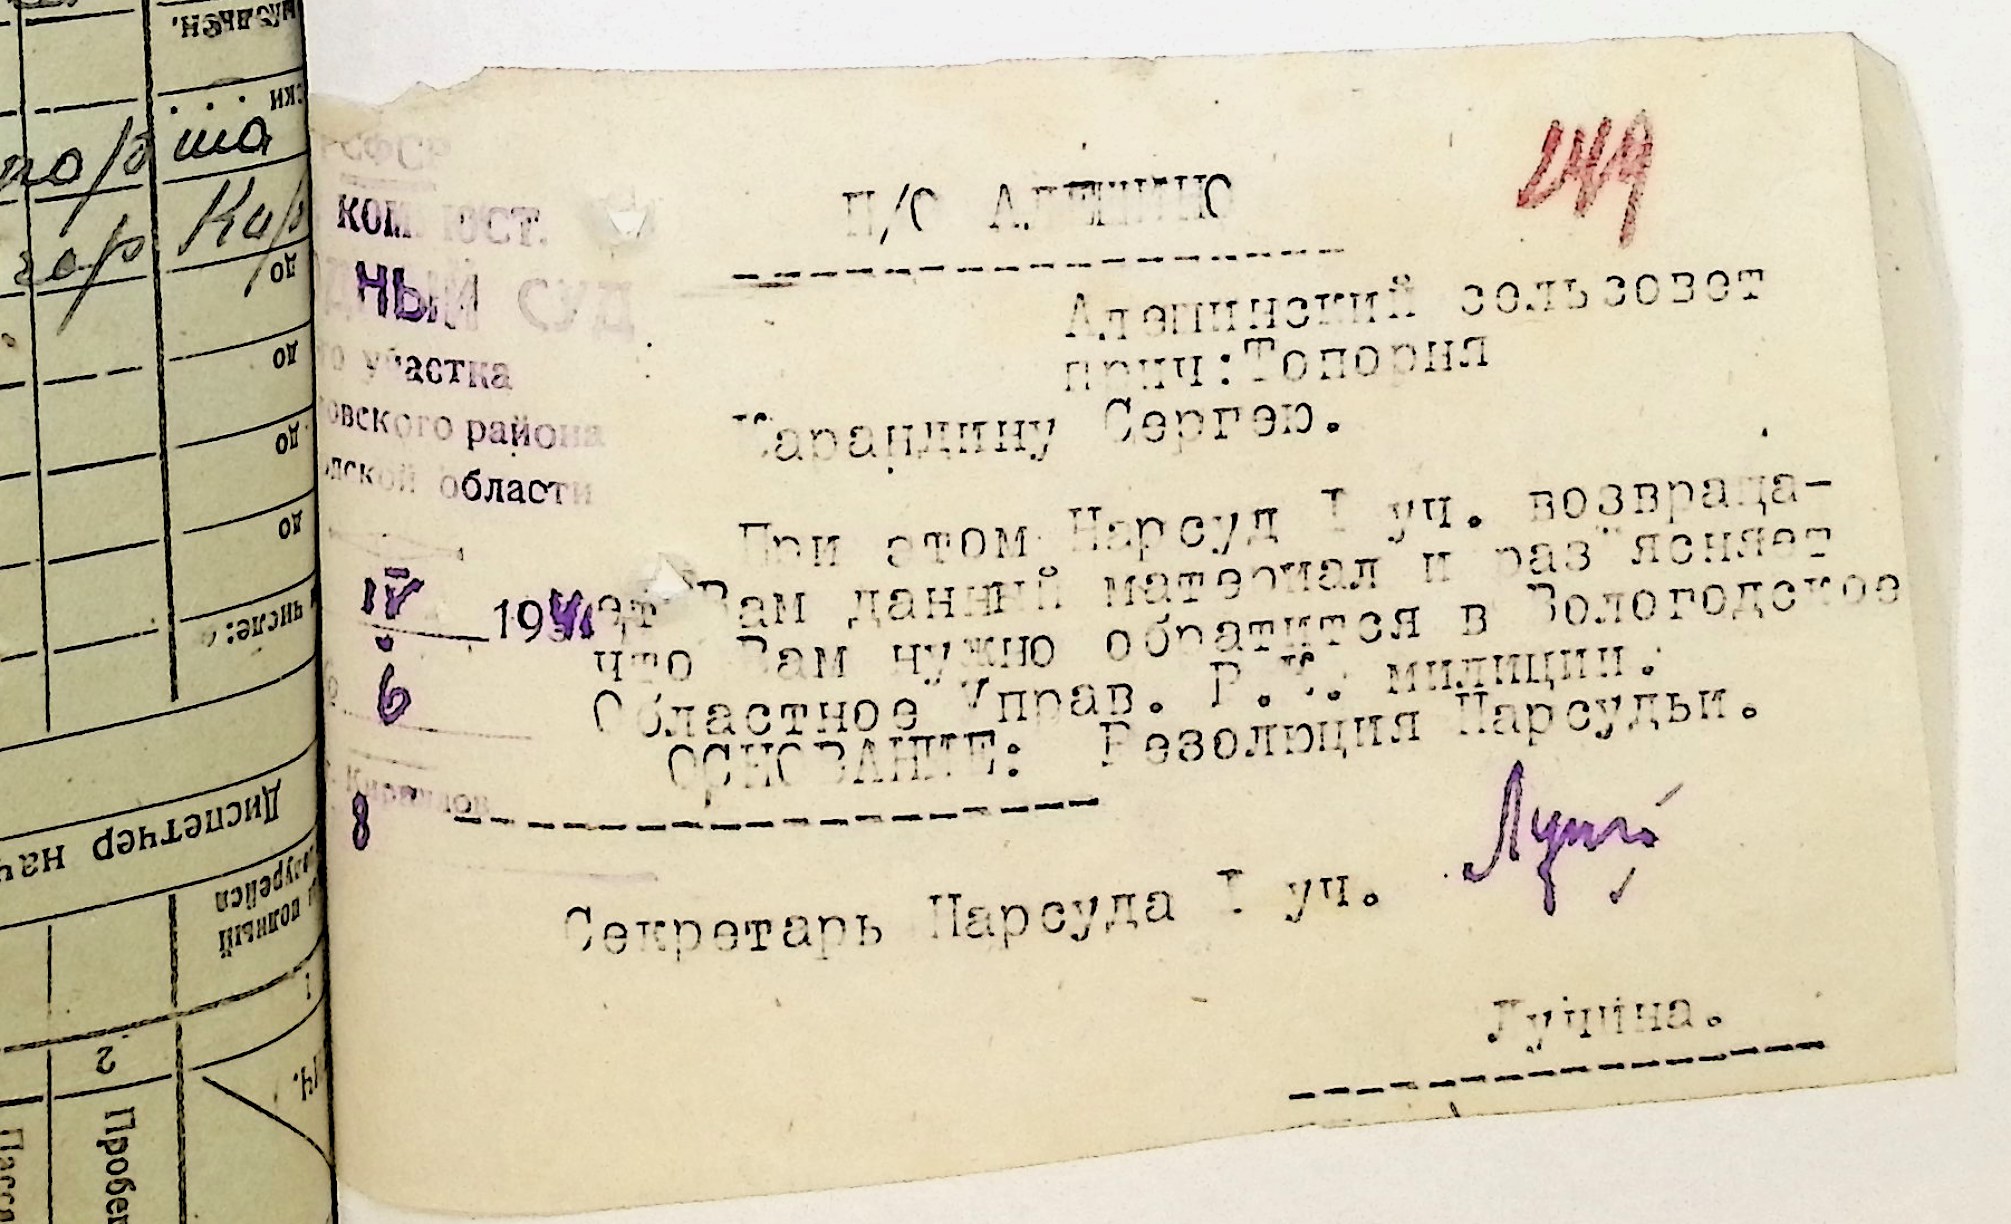 РСФСР
НЫЙ СУД
участка
овского района
области
IV 1941
6
8
244
П/О Алешино
Алешинский сельсовет
прич:Топорня
Карандину Сергею.
При этом Нарсуд I уч. возвраща-
ет Вам данный материал и раз"ясняет
что Вам нужно обратится в Вологодское
Областное Управ. Р.К. милиции.
ОСНОВАНИЕ: Резолюция Нарсудьи.
Секретарь Нарсуда I уч.
Лушина.
ски
до
до
до
до
числе:
Диспетчер нач
полный
2
1
Пробег